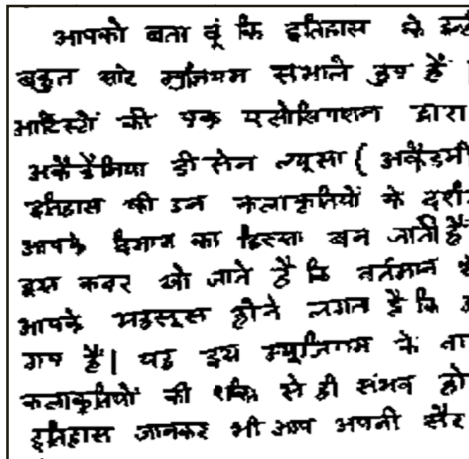 आपको बता दूं कि इतिहास के
बहुत सारे म्यूजियम संभाले हुए हैं
आर्टिस्टों की एक एसोसिएशन द्वारा
अकैडेमिया डी सेन ल्यूसा (अकैडमी
इतिहास की उन कलाकृतियों के
आपके दिमाग का हिस्सा बन जाती हैं
इस कदर खो जाते है कि वर्तमान
आपके महसूस होने लगता है कि
गए हैं| यह इस म्यूजियम के
कलाकृतियों की शक्ति से ही संभव
इतिहास जानकर भी आप अपनी सैर